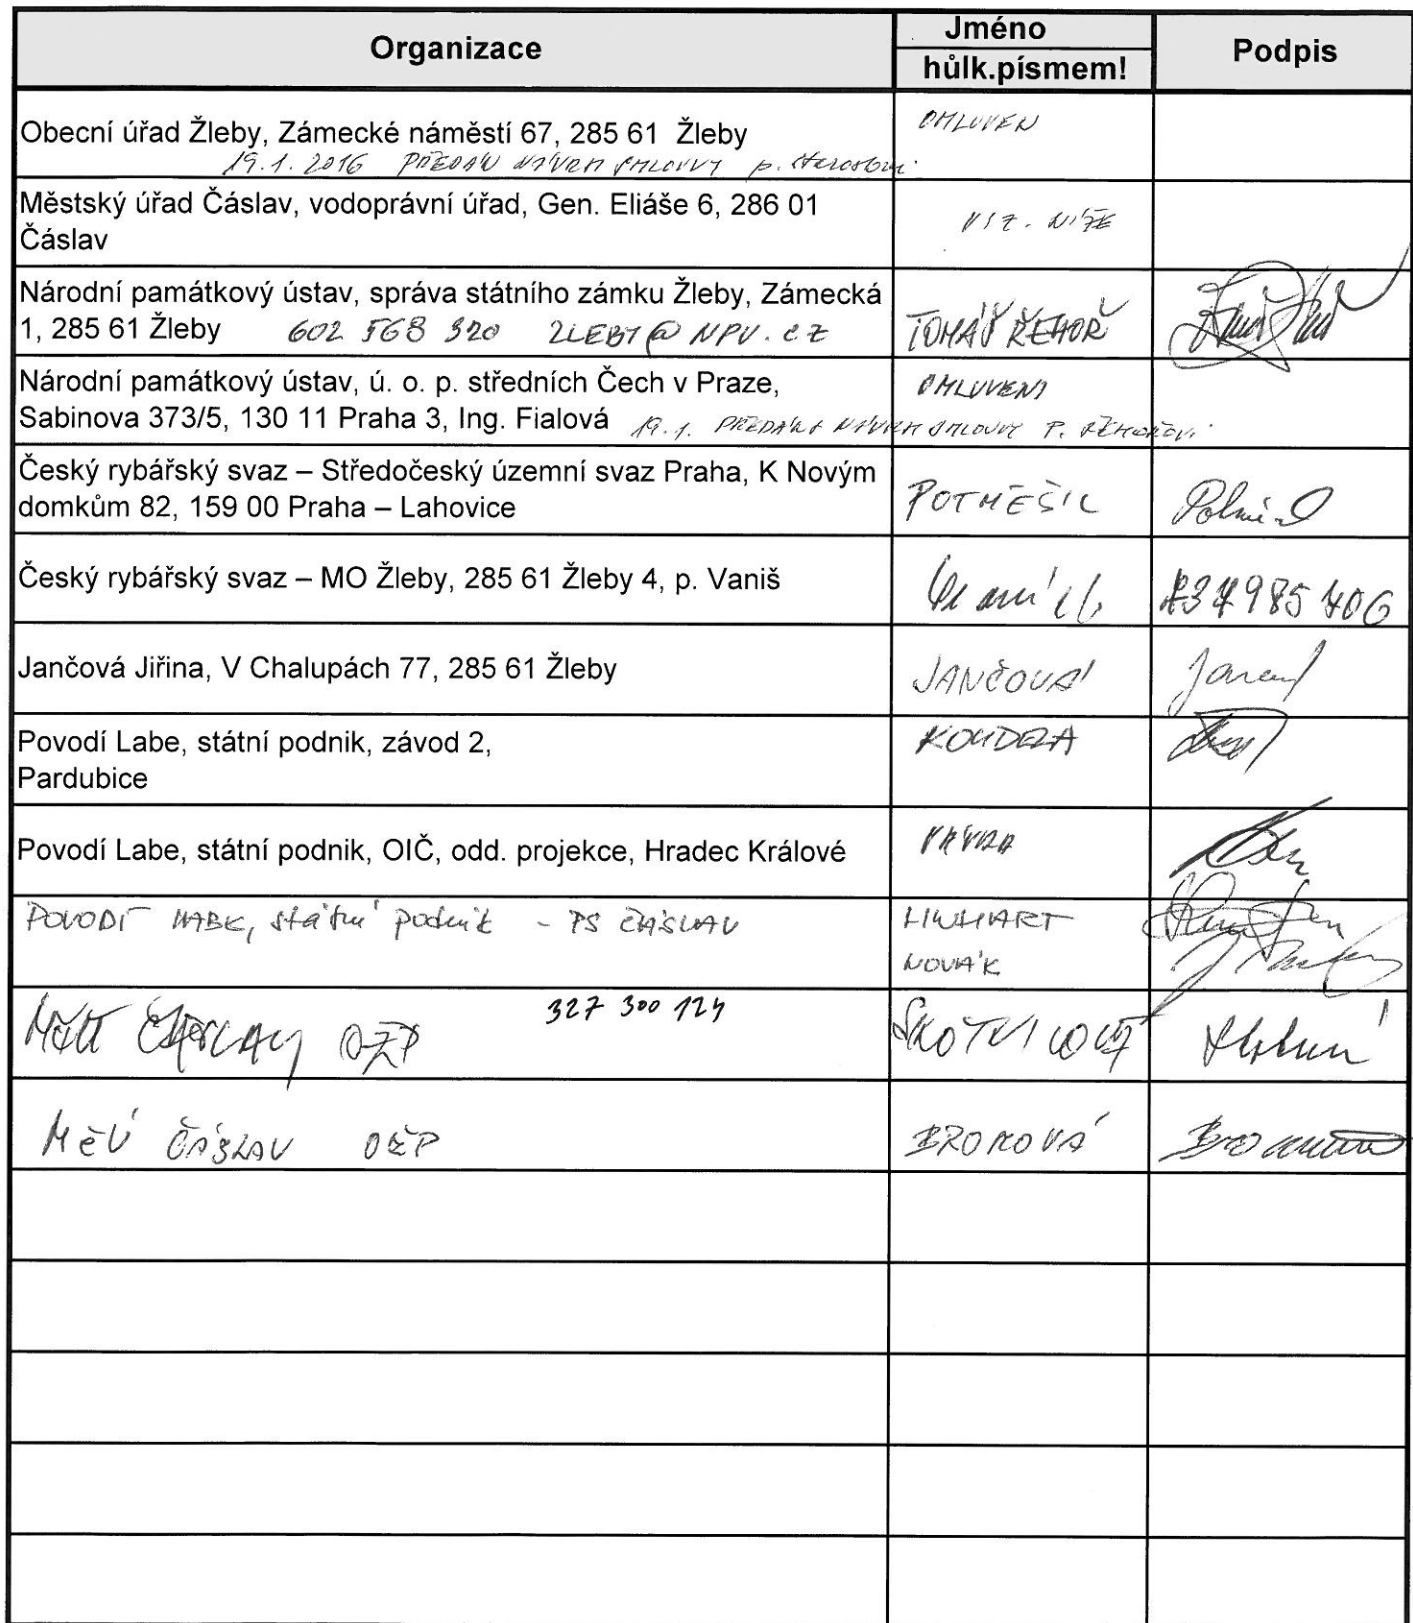 Organizace
Jméno
hůlk.písmem!
Podpis
Obecní úřad Žleby, Zámecké náměstí 67, 285 61 Žleby
OMLUVEN
19.1.2016 PŘEDÁN NÁVRH SMLOUVY p. starostovi
Městský úřad Čáslav, vodoprávní úřad, Gen. Eliáše 6, 286 01
Čáslav
VIZ. NÍŽE
Národní památkový ústav, správa státního zámku Žleby, Zámecká
1, 285 61 Žleby 602 568 320 ZLEBY@NPU.CZ
TOMÁŠ ŘEHOŘ
Národní památkový ústav, ú. o. p. středních Čech v Praze,
Sabinova 373/5, 130 11 Praha 3, Ing. Fialová 19.1. NÁVRH SMLOUVY P. ŘEHOŘOVI
OMLUVENI
Český rybářský svaz – Středočeský územní svaz Praha, K Novým
domkům 82, 159 00 Praha – Lahovice
POTMĚŠIL
Český rybářský svaz – MO Žleby, 285 61 Žleby 4, p. Vaniš
Jančová Jiřina, V Chalupách 77, 285 61 Žleby
JANČOVÁ
Povodí Labe, státní podnik, závod 2,
Pardubice
KOUDELA
Povodí Labe, státní podnik, OIČ, odd. projekce, Hradec Králové
VÁVRA
POVODÍ LABE, státní podnik - PS ČÁSLAV
LINHART
NOVÁK
MěÚ ČÁSLAV OŽP 327 300 124
MěÚ ČÁSLAV OŽP
BROKOVÁ